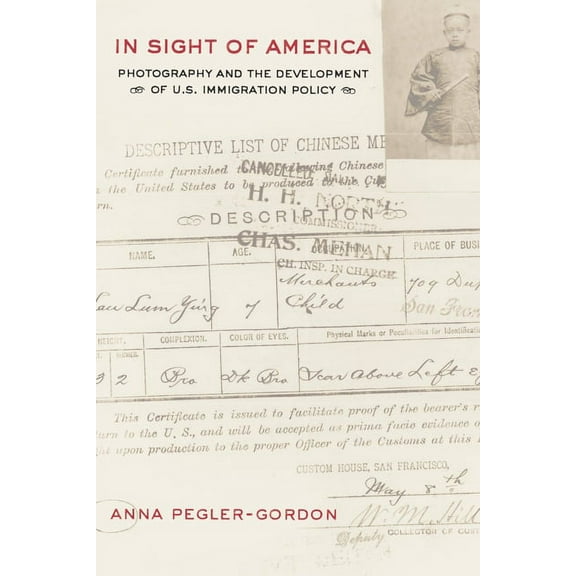 IN SIGHT OF AMERICA
PHOTOGRAPHY AND THE DEVELOPMENT
OF U.S. IMMIGRATION POLICY
DESCRIPTIVE LIST OF CHINESE ME
Certificate furnished to following Chinese
the United States to be produced to the Cu
rn.
CANCELLED
H. H. NORTH
COMMISSIONER
DESCRIPTION
CHAS. MEHAN
CH. INSP. IN CHARGE
NAME. AGE. OCCUPATION. PLACE OF BUSI
Lum Ying 7 Merchants Child 709 Du
San Fra
HEIGHT. COMPLEXION. COLOR OF EYES. Physical Marks or Peculiarities for Identificati
INCHES.
3 2 Bro Dk Bro Scar Above Left Ey
This Certificate is issued to facilitate proof of the bearer's r
turn to the U. S., and will be accepted as prima facie evidence o
ht upon production to the proper Officer of the Customs at this
CUSTOM HOUSE, SAN FRANCISCO,
May 8th
ANNA PEGLER-GORDON
W. M. Hill
Deputy COLLECTOR OF CUST